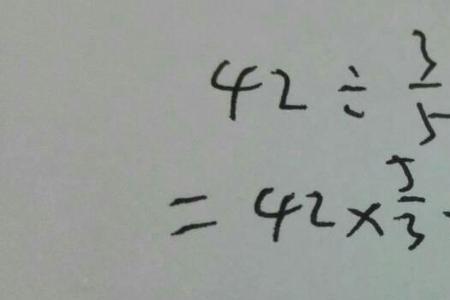 42 ÷ 3/5
= 42 × 5/3